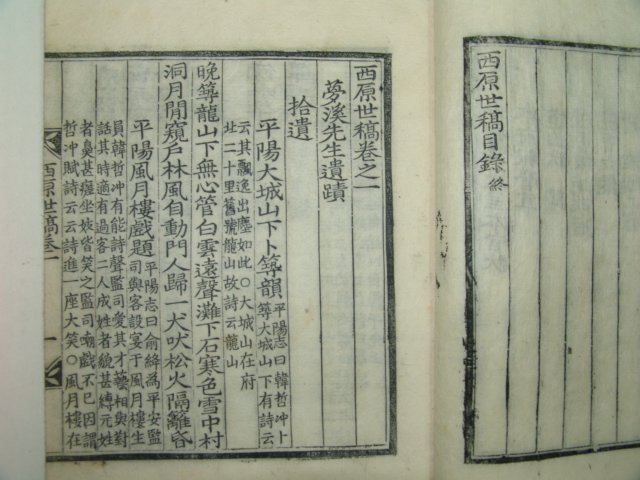 西原世稿目錄終
西原世稿卷之一
夢溪先生遺蹟
拾遺
平陽大城山下卜築韻平陽志曰韓哲冲卜築大城山下有詩云
云其飄逸出塵如此○大城山在府
址二十里舊號龍山故詩云龍山
晩築龍山下無心管白雲遠聲灘下石寒色雪中村
洞月閒窺戶林風自動門人歸一犬吠松火隔籬昏
平陽風月樓戲題平陽志曰俞絳為平安監司與客設宴于風月樓生
員韓哲冲有能詩聲監司愛其才藝相與對
話其時適有過客二人成姓者貌甚縛元姓
者鼻甚癯坐妓皆笑之監司嘲戲不已因謂
哲冲賦詩云云詩進一座大笑○風月樓在
西原世稿卷一
一